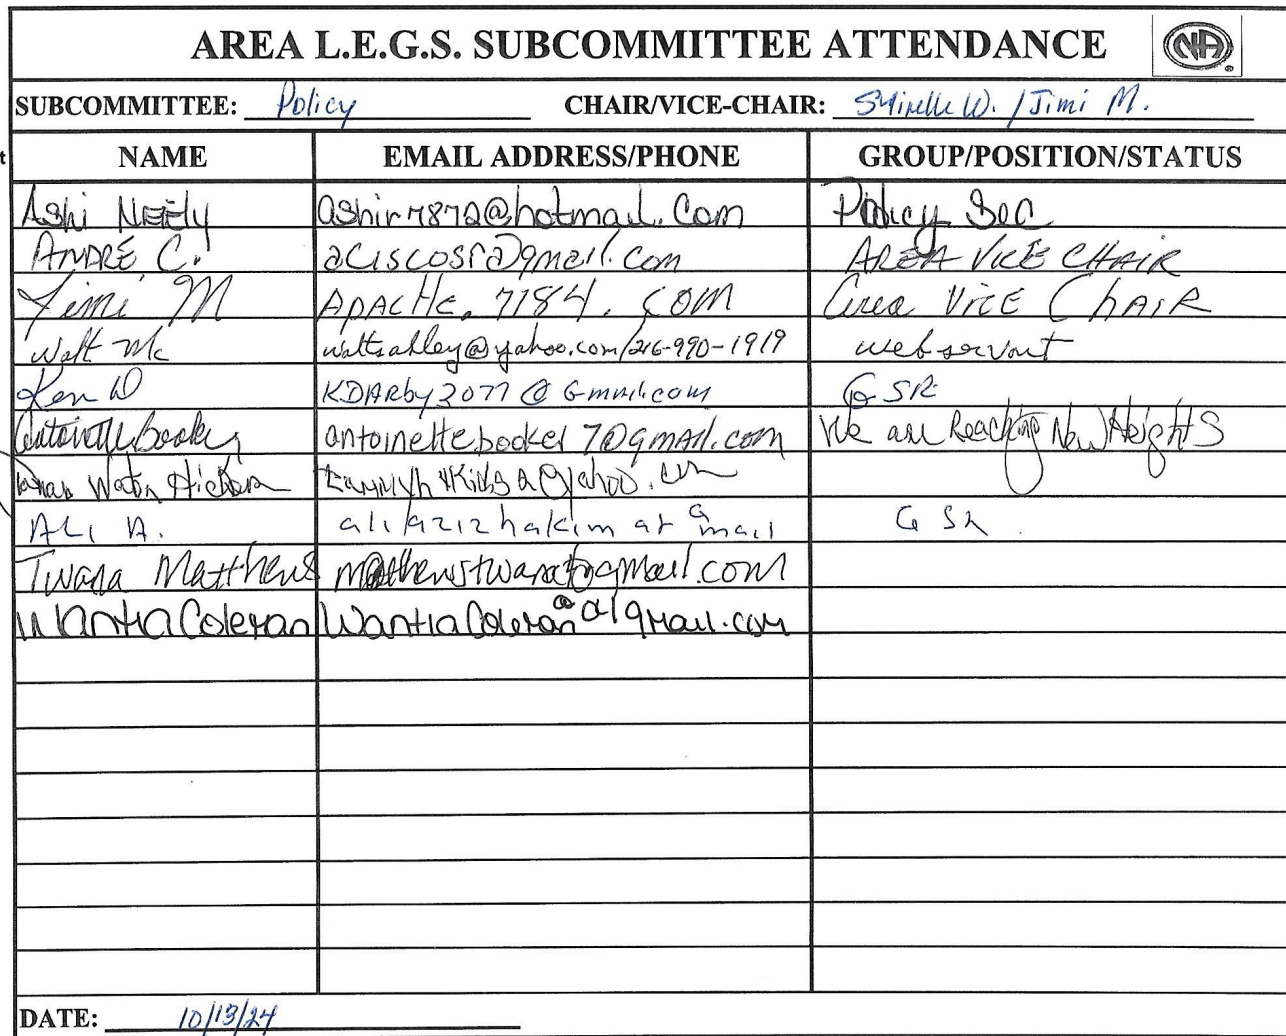 AREA L.E.G.S. SUBCOMMITTEE ATTENDANCE NA
SUBCOMMITTEE: Policy CHAIR/VICE-CHAIR: W. / Jimi M.
NAME EMAIL ADDRESS/PHONE GROUP/POSITION/STATUS
Ashi Neely ashir7872@hotmail.com Policy Sec
ANDRÉ C. aciscosr@gmail.com AREA VICE CHAIR
Jimi M APACHE.7184.COM Area VICE CHAIR
Walt Mc waltsahley@yahoo.com/216-990-1919 webservant
Ken D KDARby3077@Gmail.com GSR
Antoinette Booker antoinettebooker7@gmail.com We are Reaching New Heights
ALI A. aliazizhakim at Gmail GSR
Twana Matthews
Wantia Coleman
DATE: 10/13/24